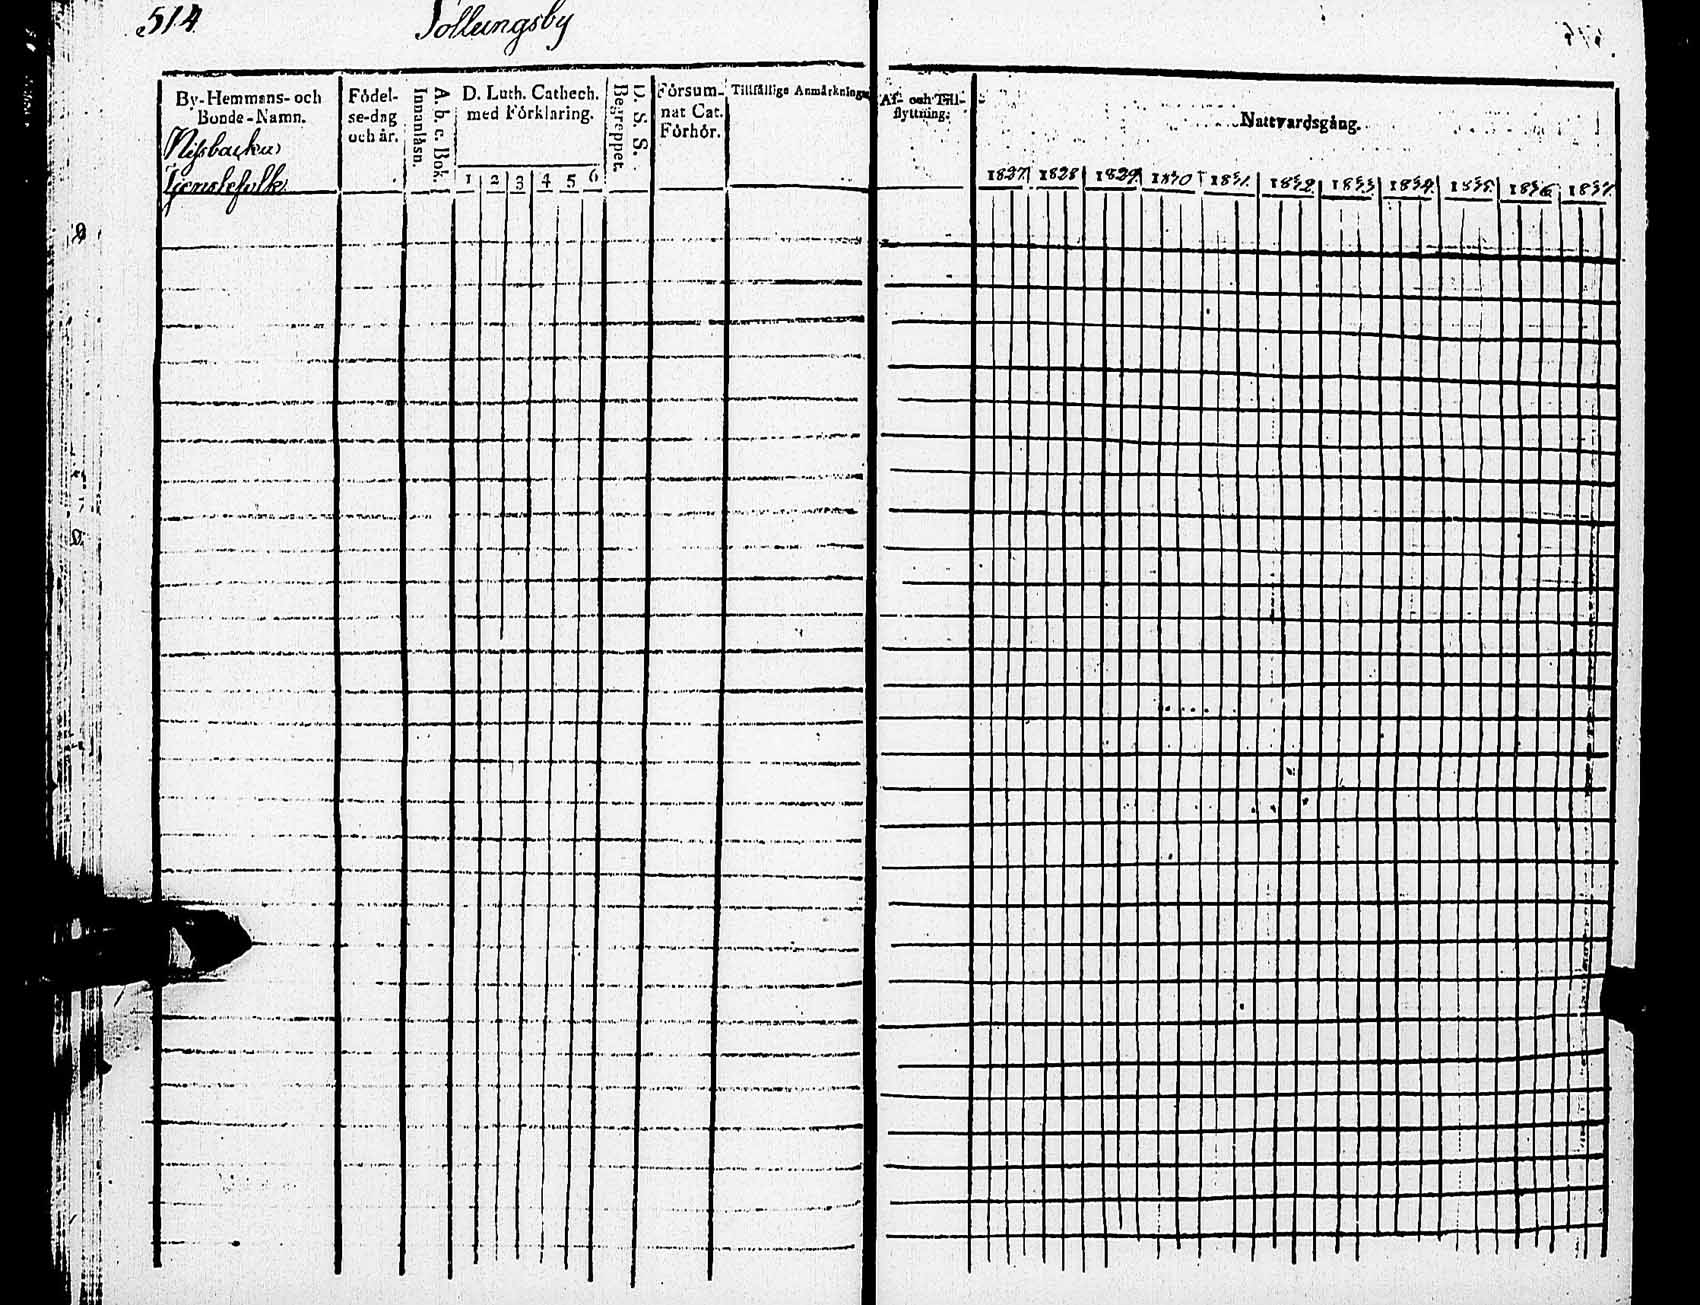 514
Tollungsby
By-Hemmans- och
Bonde-Namn.
Nissbacka
tjenstefolk
Födel-
se-dag
och år.
A. b. c. Bok.
Innanläsn.
D. Luth. Cathech.
med Förklaring.
1 2 3 4 5 6
D. S. S.
Begreppet.
Försum-
nat Cat.
Förhör.
Tillfällige Anmärkningar
Af- och Till-
flyttning.
Nattvardsgång.
1827. 1828 1829. 1830 1831. 1832. 1833 1834. 1835. 1836. 1837.